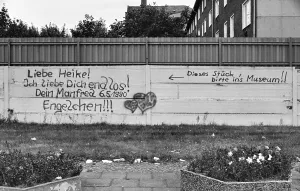 Liebe Heike!
Ich liebe Dich endlos!
Dein Manfred 6.5.1980
Engelchen!!!
← Dieses Stück
bitte ins Museum!!